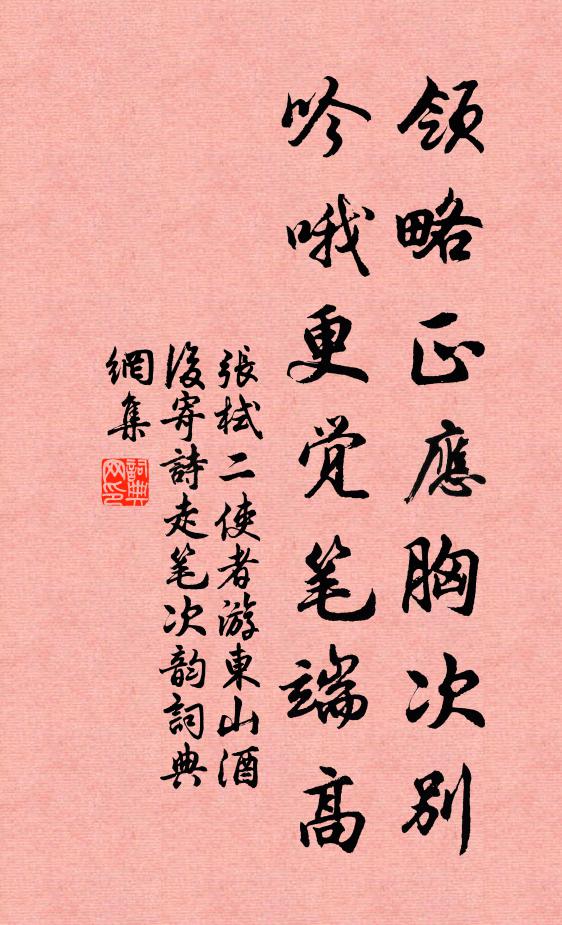 領略正應胸次別
吟哦更覚笔端高
張栻二使者游東山酒
後寄詩走笔次韵詞典
網集
詞典
网印